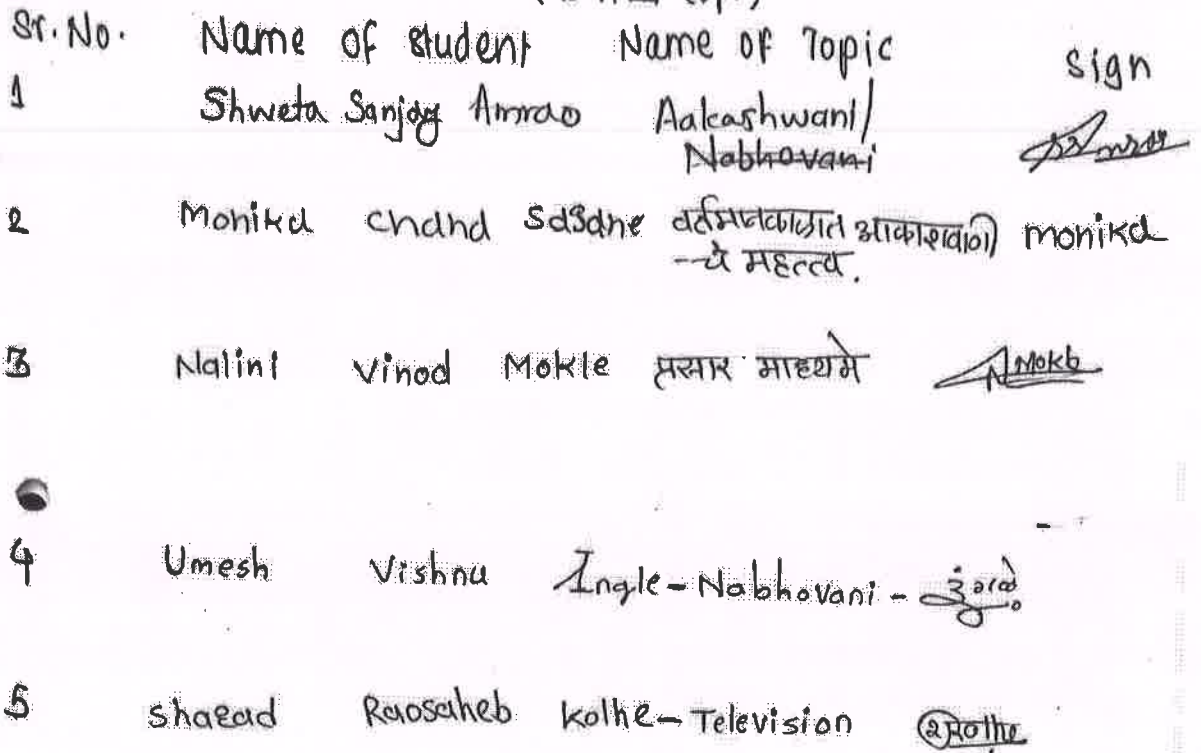 Sr. No. Name of student Name of Topic sign
1 Shweta Sanjay Amrao Aakashwani/
Nabhovani
2 Monika chand Sasane वर्तमानकाळात आकाशवाणी monika
-चे महत्त्व.
3 Nalini Vinod Mokle प्रसार माध्यमे Mokle
4 Umesh Vishnu Ingle - Nabhovani - इंगळे
5 Sharad Raosaheb Kolhe - Television